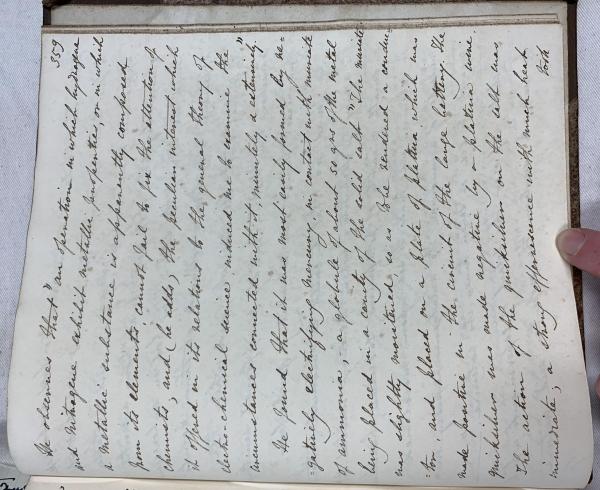 359
He observes that "an operation in which hydrogene
and nitrogene exhibit metallic properties, or in which
a metallic substance is apparently composed
from its elements, cannot fail to fix the attention of
chemists; and (he adds) the peculiar interest which
it offered in its relations to the general theory of
electro-chemical science induced me to examine the
circumstances connected with it, minutely & extensively."
He found that it was most easily formed by ne=
=gatively electrifying mercury in contact with muriate
of ammonia; "a globule of about 50 grs of the metal
being placed in a cavity of the solid salt." The muriate
was slightly moistened, so as to be rendered a conduc=
=tor, and placed on a plate of platina which was
made positive in the circuit of the large battery. The
quicksilver was made negative by a platina wire.
The action of the quicksilver on the salt was
immediate; a strong effervescence with much heat
took